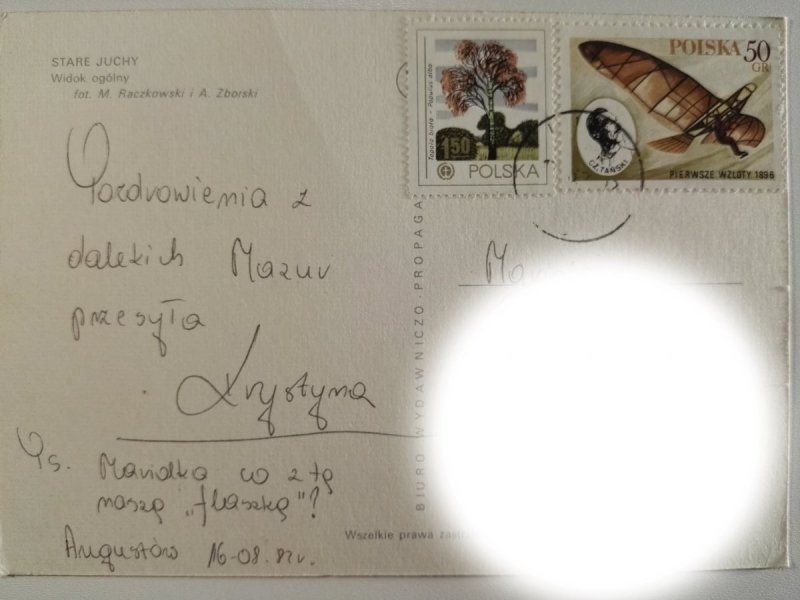 STARE JUCHY
Widok ogólny
fot. M. Raczkowski i A. Zborski
Topola biała - Populus alba
1.50
POLSKA
POLSKA 50
GR
CZ. TAŃSKI
PIERWSZE WZLOTY 1896
Pozdrowienia z
dalekich Mazur
przesyła
Krystyna
Ps. Mariolka co z tą
naszą „flaszką"?
Augustów 16-08.82r.
BIURO WYDAWNICZO-PROPAGA
Wszelkie prawa